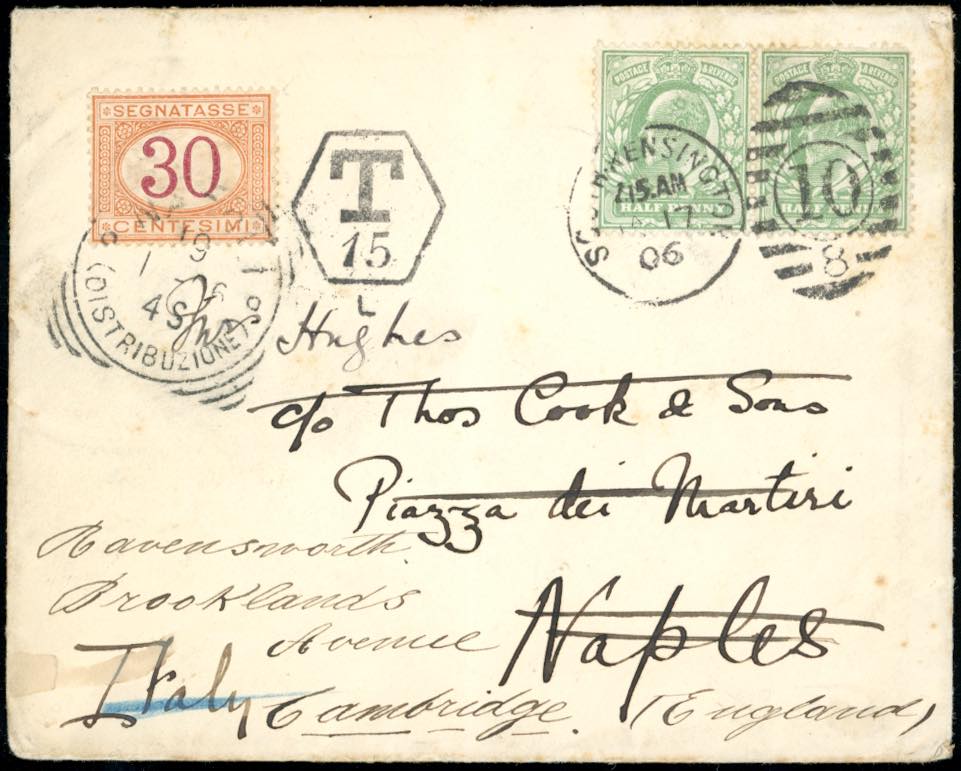 POSTAGE & REVENUE
POSTAGE & REVENUE
HALF PENNY
HALF PENNY
SEGNATASSE
30
CENTESIMI
T
15
L
KENSINGTON
7.15.AM
17
06
10
8
19
4S
(DISTRIBUZIONE)
Hughes
c/o Thos Cook & Sons
Piazza dei Martiri
Naples
Italy
Ravensworth
Brooklands
Avenue
Cambridge. (England)